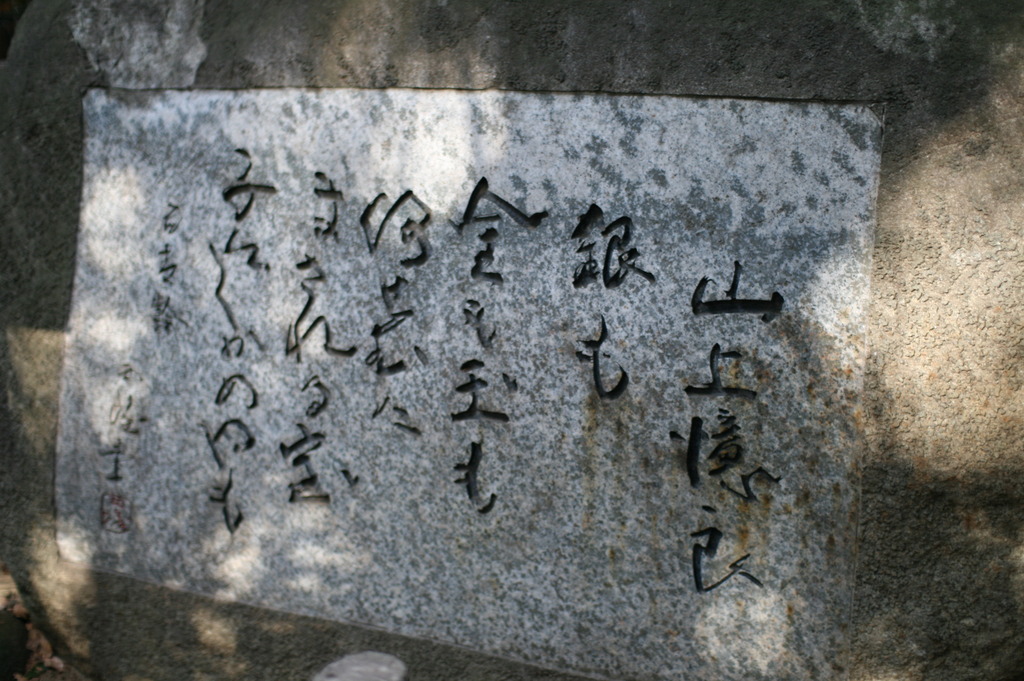 山上憶良
銀も
金も玉も
何せむに
まされる宝
子にしかめやも